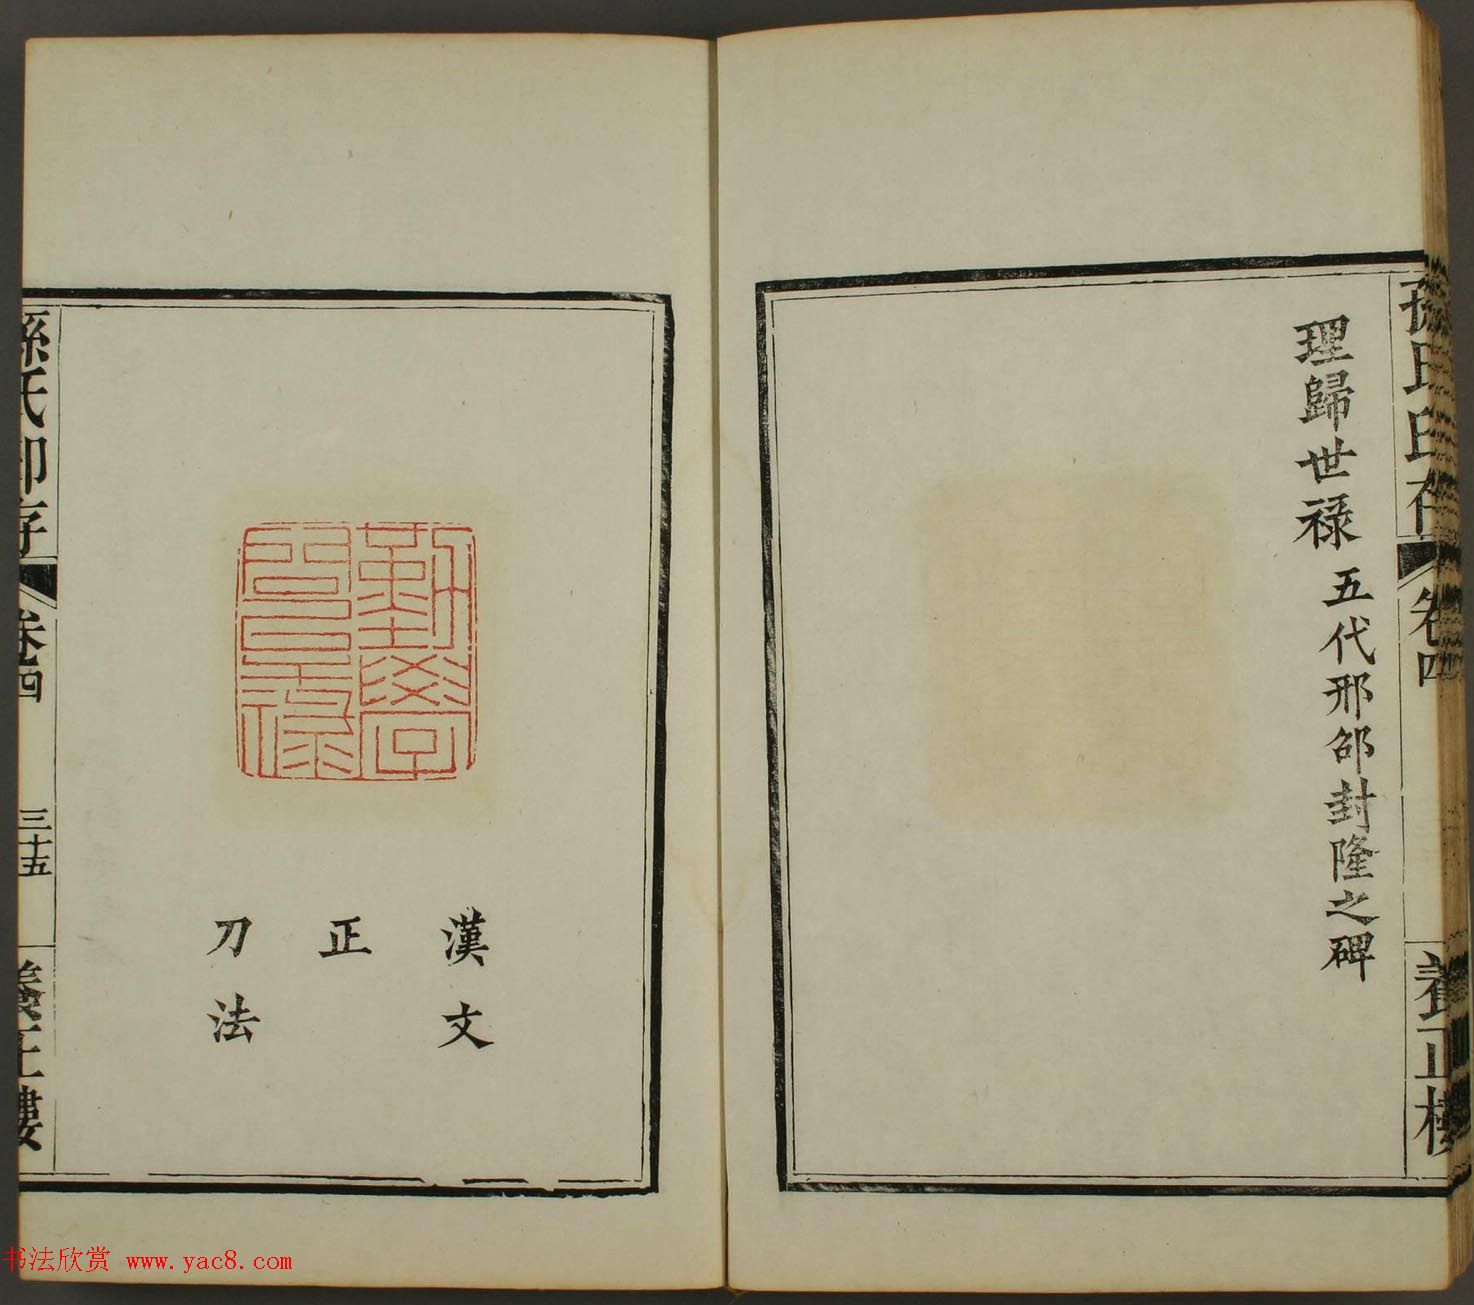 孫氏印存
卷四
養正樓
理歸世祿 五代邢邵封隆之碑
漢文
正
刀法
孫氏印存
卷四
三十五
養正樓
书法欣赏 www.yac8.com